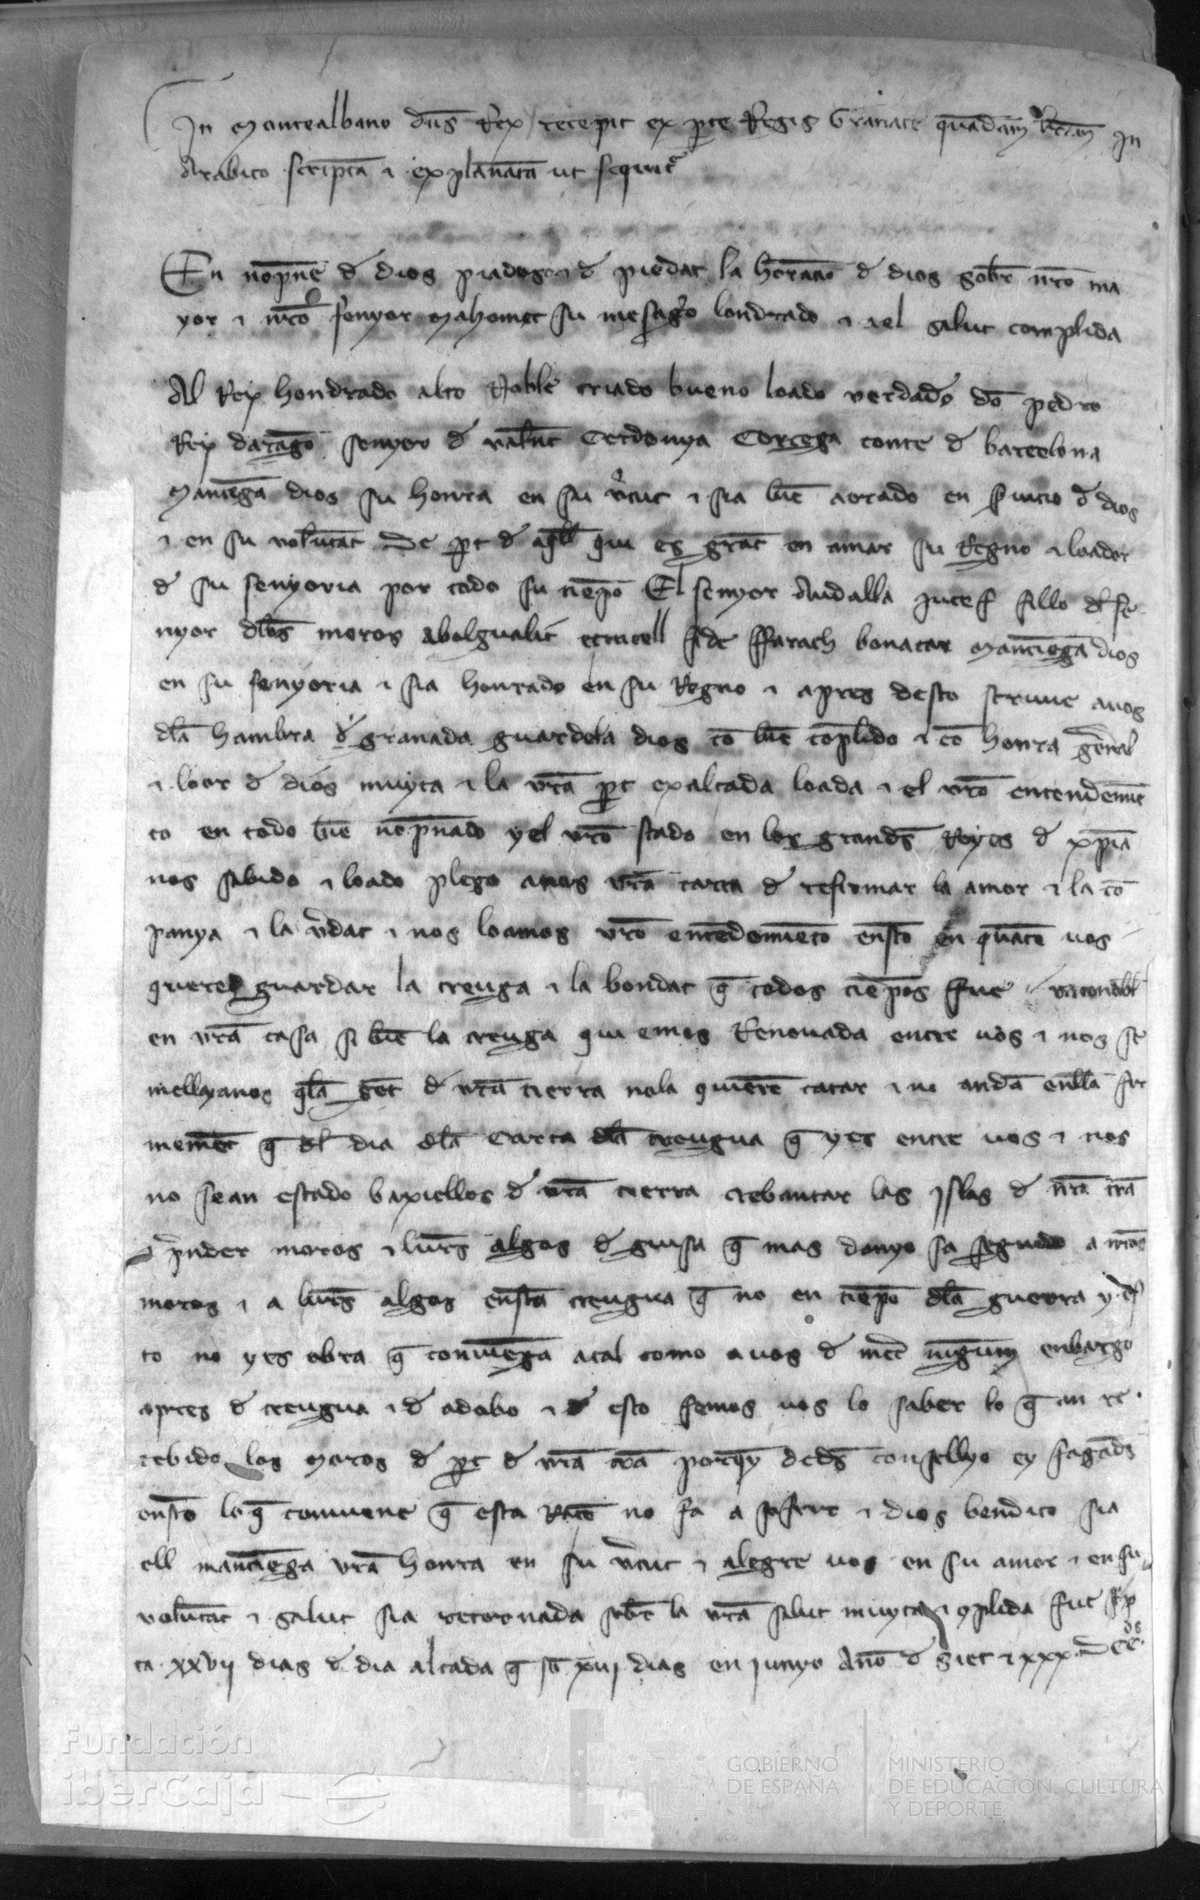 In Montealbano dns Rex recepit ex pte Regis Granate quadam lram in
Arabico scriptam ⁊ explanatam ut sequitr
En nopne de dios piadoso ⁊ de piedat la horacio de dios sobre nro ma
yor ⁊ nro senyor Mahomet su mesagero londrado ⁊ a el salut complida
Al Rey hondrado alto Noble criado bueno loado verdadero do pedro
Rey darago senyor de valent Cerdenya Corcega conte de barcelona
Mantega dios su honra en su vtut ⁊ sia bie aorado en suicio d dios
⁊ en su voluntat De pt de aqll qui es grat en amar su Regno ⁊ loador
de su senyoria por todo su tiepo El senyor Audalla Jucef fillo dl se
nyor dlos moros abolgualit ecmicell fide ffarach bonacar Mantiega dios
en su senyoria ⁊ sia honrado en su Regno ⁊ apres desto scriuie auos
dla hambra de granada guardela dios co bie coplido ⁊ co honra general
⁊ loor de dios muyta ⁊ la vra pt exalcada loada ⁊ el vro entendemie
to en todo bie nopnado y el vro stado en los grandes Reyes de xpia
nos sabido ⁊ loado plego anos vra carta de refirmar la amor ⁊ la co
panya ⁊ la vdat ⁊ nos loamos vro entedemieto ensto en quato vos
queredes guardar la treuga ⁊ la bondat q todos tiepos fue
en vra casa si bie la treuga qui emos Renouada entre vos ⁊ nos se
mellyanos qla gent de vra tierra nola quiere catar ⁊ no anda enlla fir
memet q dl dia dla Carta dla treugua q yes entre vos ⁊ nos
no sean estado baxiellos de vra tierra crebantar las Islas de nra tra
⁊ pnder moros ⁊ lures algos de guisa q mas danyo sa seguido a nros
moros ⁊ a lures algos ensta treugua q no en tiepo dla guerra y es
to no yes obra q conuienga atal como a uos de meter nigun enbargo
apres de treugua ⁊ de adobo ⁊ de esto femos uos lo saber lo q an re
cebido los moros de pt de vra tra porq dedes consellyo ey fagades
ensto loq conuiene q esta Rato no fa a sofrir ⁊ dios bendito sia
ell mantiega vra honra en su vtut ⁊ alegre uos en su amor ⁊ en su
voluntat ⁊ salut sia retornada sobre la vra salut muyta ⁊ cplida fue scp
ta xxvij dias de dia alcada q so xvij dias en junyo Ano de Siet ⁊ xxx